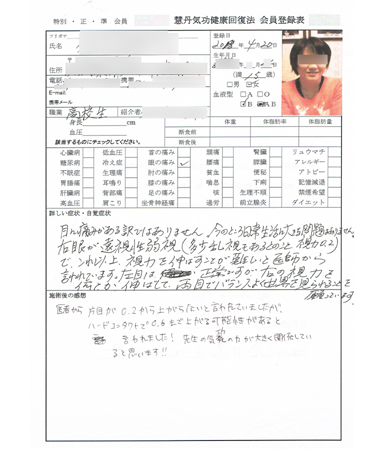 特別・正・準 会員 慧丹気功健康回復法 会員登録表
フリガナ
氏名
登録日
住所
(満 15歳)
電話 携帯
□男 □女
E-mail
血液型 □A □O
携帯メール
□B □AB
職業 高校生 紹介者
身長 体重 体脂肪率 体重 体脂肪量
血圧 断食前
該当するものにチェックしてください。 断食後
心臓病 低血圧 首の痛み 頭痛 腎臓 リュウマチ
糖尿病 冷え症 眼の痛み 腰痛 膵臓 アレルギー
不眠症 生理痛 肘の痛み 貧血 便秘 アトピー
胃腸痛 耳鳴り 膝の痛み 喘息 下痢 記憶減退
肝臓病 背部痛 足の痛み 咳 生理不順 禁煙希望
高血圧 肩こり 坐骨神経痛 過労 前立腺炎 ダイエット
詳しい症状・自覚症状
目に痛みがある訳ではありません。今のところ日常生活に大きな問題はありません。
右眼が遠視性弱視(多少乱視もあるとのこと 視力0.2)
で、これ以上、視力を伸ばすことが難しいと医師から
言われています。左目は 正常ですが 右の視力を
何とか伸ばして、両目でバランスよく世界を見られることを
願っています。
施術後の感想
医者から 片目が0.2から上がらないと言われていましたが、
ハードコンタクトで0.6まで上がる可能性があると
言われました! 先生の気功の力が大きく関係してい
ると思います!!